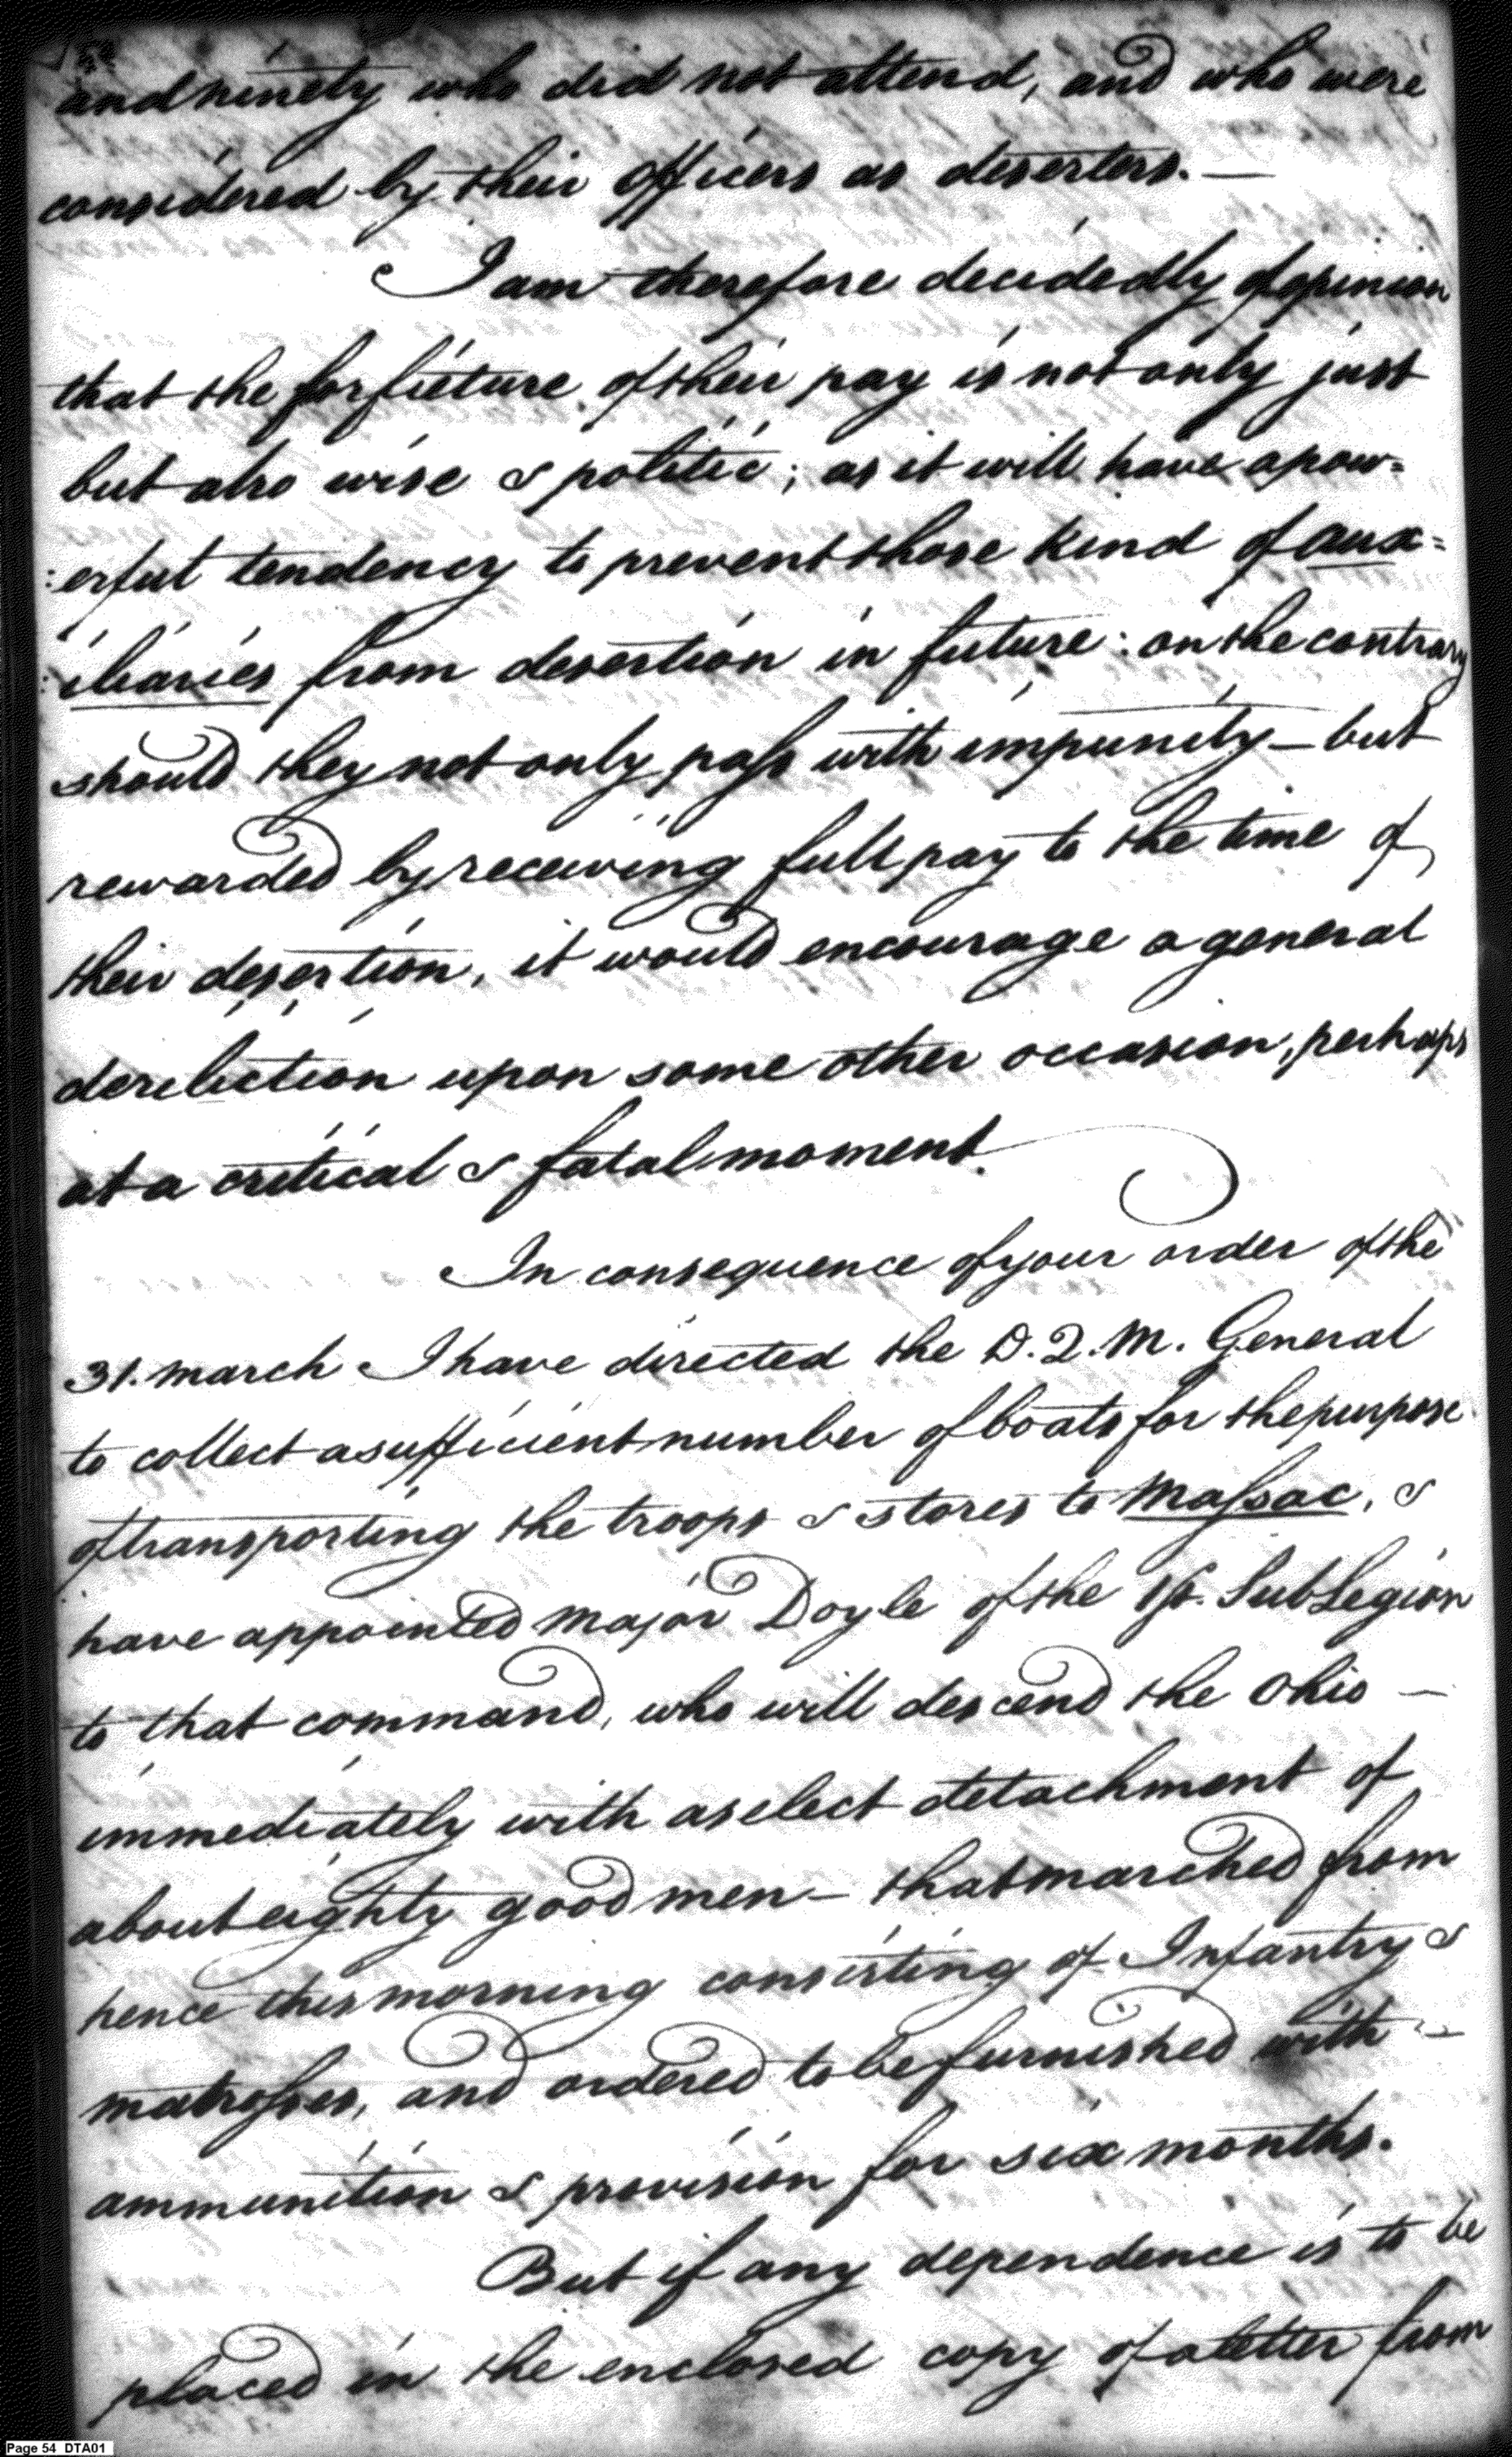 and ninety who did not attend, and who were
considered by their officers as deserters. —
I am therefore decidedly of opinion
that the forfieture of their pay is not only just
but also wise & politic; as it will have a pow=
:erful tendency to prevent those kind of aux=
:iliaries from desertion in future: on the contrary
should they not only pass with impunity — but
rewarded by receiving full pay to the time of
their desertion, it would encourage a general
deriliction upon some other occasion, perhaps
at a critical & fatal moment.
In consequence of your order of the
31. march I have directed the D. Q. M. General
to collect a sufficient number of boats for the purpose
of transporting the troops & stores to Massac, &
have appointed Major Doyle of the 1st. Sub Legion
to that command, who will descend the Ohio —
immediately with a select detachment of
about eighty good men — that marched from
hence this morning consisting of Infantry &
matrosses, and ordered to be furnished with —
ammunition & provision for six months.
But if any dependence is to be
placed in the enclosed copy of a letter from
Page 54 DTA01